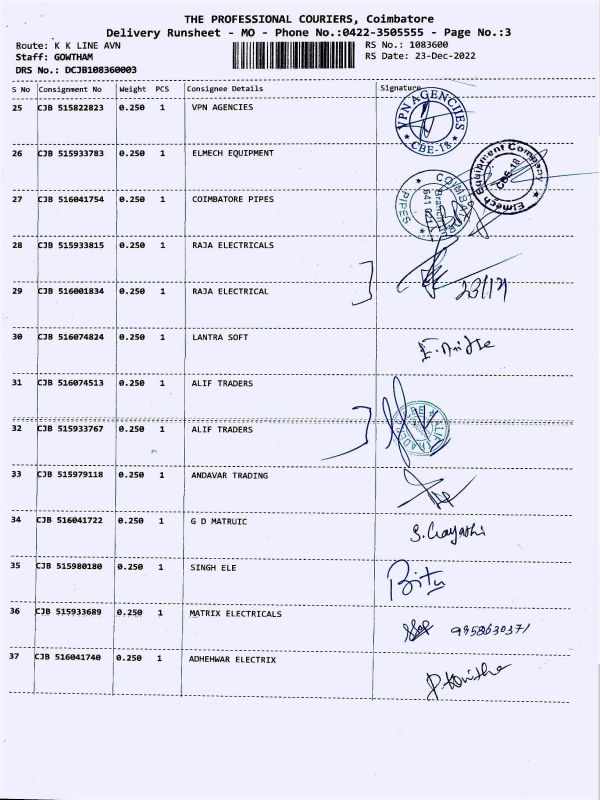 THE PROFESSIONAL COURIERS, Coimbatore
Delivery Runsheet - MO - Phone No.:0422-3505555 - Page No.:3
Route: K K LINE AVN RS No.: 1083600
Staff: GOWTHAM RS Date: 23-Dec-2022
DRS No.: DCJB108360003
S No Consignment No Weight PCS Consignee Details Signature
25 CJB 515822823 0.250 1 VPN AGENCIES
VPN AGENCIIES
* CBE-18 *
26 CJB 515933783 0.250 1 ELMECH EQUIPMENT
Elmech Equipment Company
CBE-18
27 CJB 516041754 0.250 1 COIMBATORE PIPES
COIMBATORE PIPES
Branch
641
28 CJB 515933815 0.250 1 RAJA ELECTRICALS
29 CJB 516001834 0.250 1 RAJA ELECTRICAL
23/12
30 CJB 516074824 0.250 1 LANTRA SOFT
31 CJB 516074513 0.250 1 ALIF TRADERS
32 CJB 515933767 0.250 1 ALIF TRADERS
33 CJB 515979118 0.250 1 ANDAVAR TRADING
34 CJB 516041722 0.250 1 G D MATRUIC
S. Gayathri
35 CJB 515980180 0.250 1 SINGH ELE
Bitu
36 CJB 515933689 0.250 1 MATRIX ELECTRICALS
9958630371
37 CJB 516041740 0.250 1 ADHEHWAR ELECTRIX